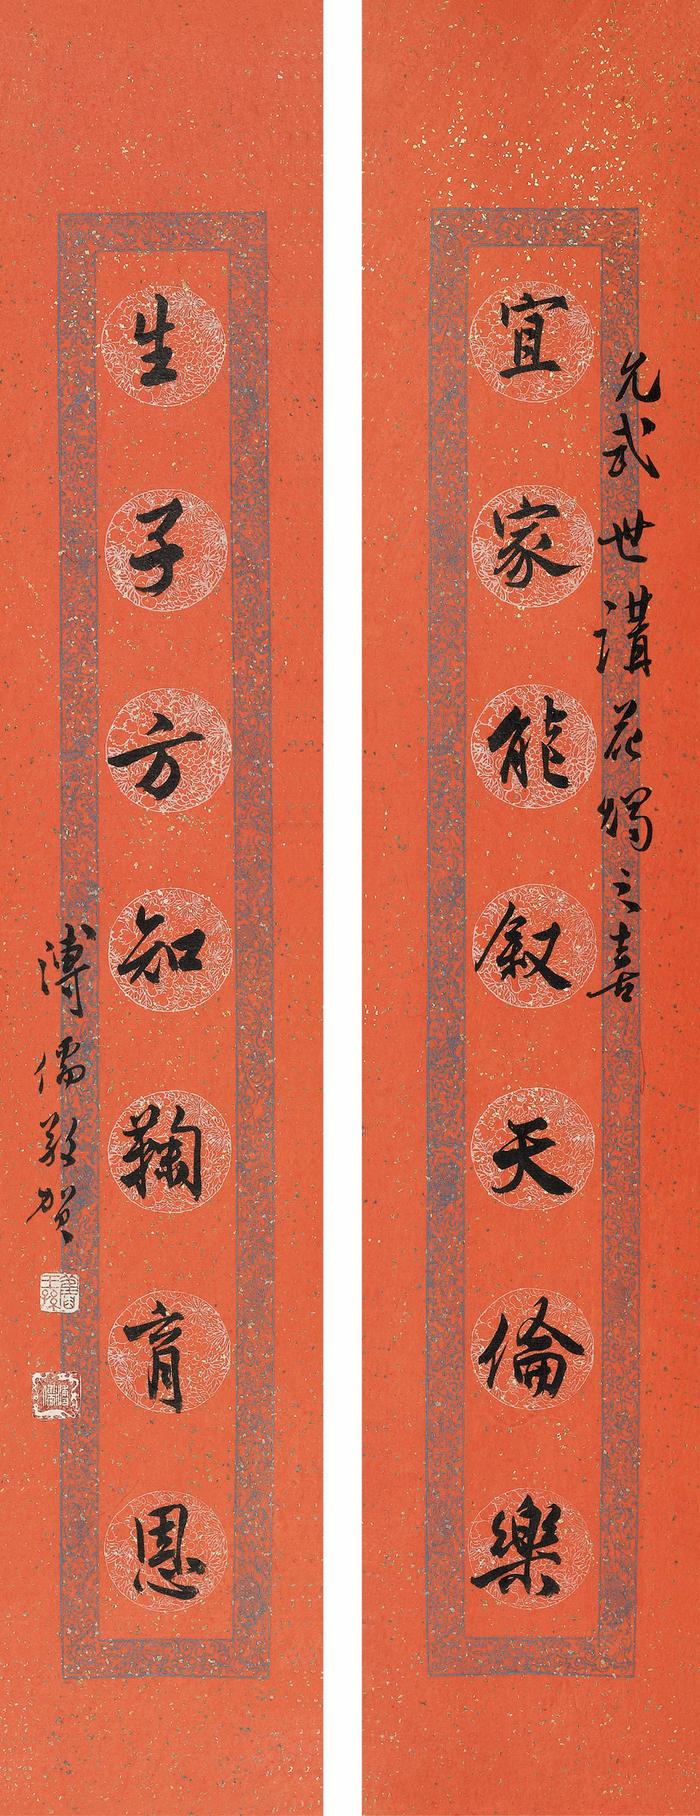 允武世講花燭之喜
宜家能叙天倫樂
生子方知鞠育恩
溥儒敬賀
舊王孫
溥儒